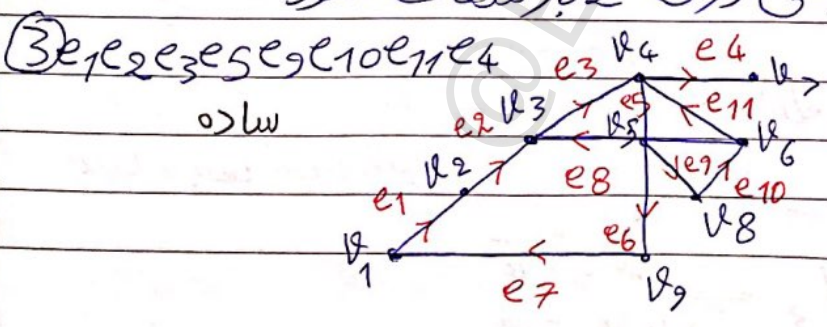 ③ e₁e₂e₃e₅e₉e₁₀e₁₁e₄
ساده
v₄ e₄ v₇
e₃
v₃ e₅ e₁₁
e₂ v₅ v₆
v₂ e₈ e₉ e₁₀
e₁ v₈
v₁ e₆
e₇ v₉